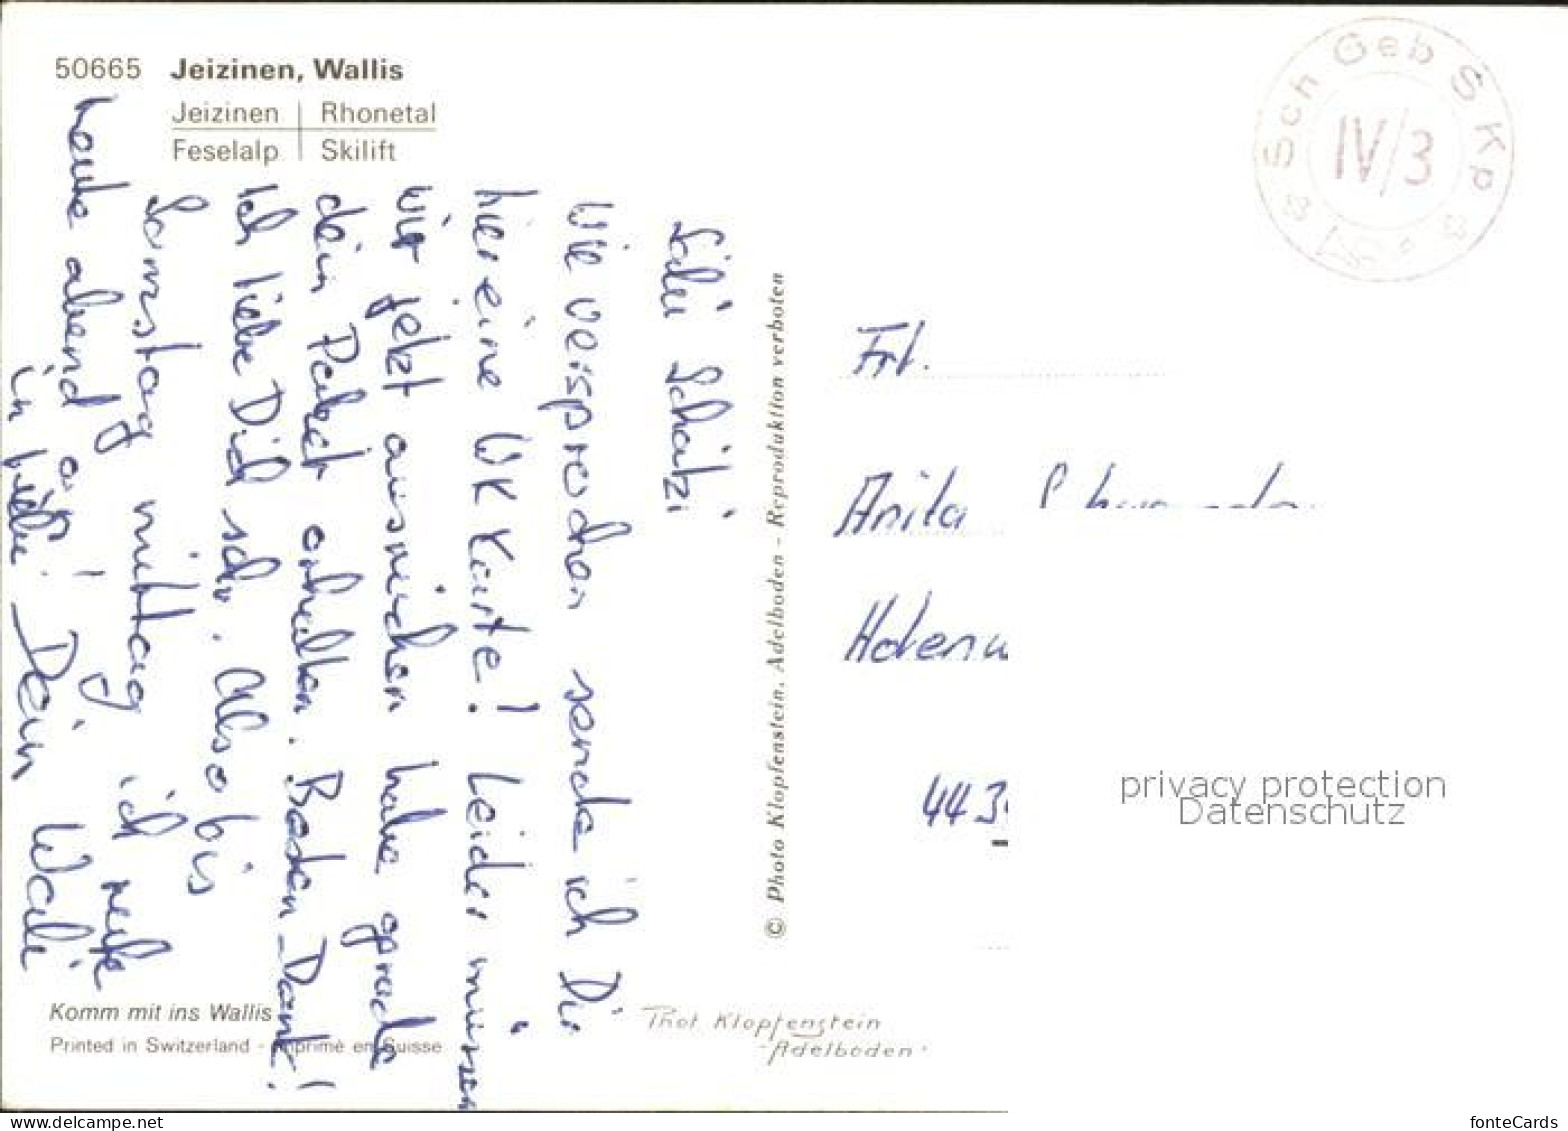 50665 Jeizinen, Wallis
Jeizinen | Rhonetal
Feselalp | Skilift
Salü Schatzi
Wie versprochen sende ich Dir
hier eine WK Karte! Leider müssen
wir jetzt ausrücken habe grade
dein Paket erhalten. Besten Dank!
Ich liebe Dich sehr. Also bis
Samstag mittag, ich rufe
heute abend a!
in Liebe Dein Wali
Komm mit ins Wallis
Printed in Switzerland - Imprimé en Suisse
© Photo Klopfenstein, Adelboden - Reproduktion verboten
Phot Klopfenstein
-Adelboden-
Sch Geb S Kp
IV/3
Frl.
Anita
443
privacy protection
Datenschutz
www.delcampe.net
fonteCards